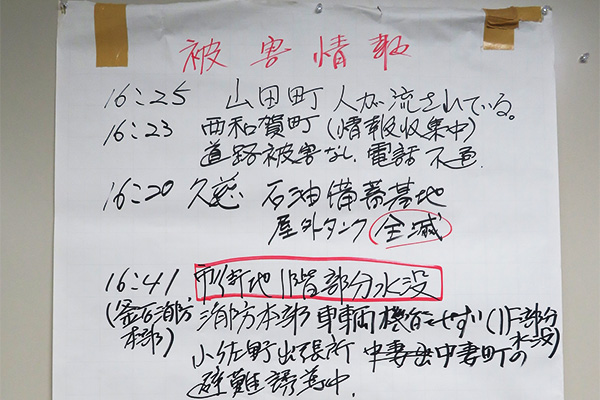 被害情報
16:25 山田町 人が流されている。
16:23 西和賀町(情報収集中)
道路被害なし、電話不通.
16:20 久慈 石油備蓄基地
屋外タンク 全滅
16:41 市街地1階部分水没
(釜石消防本部) 消防本部車輌機能せず(1F部分水没)
小佐野出張所 中妻出中妻町の
避難誘導中.